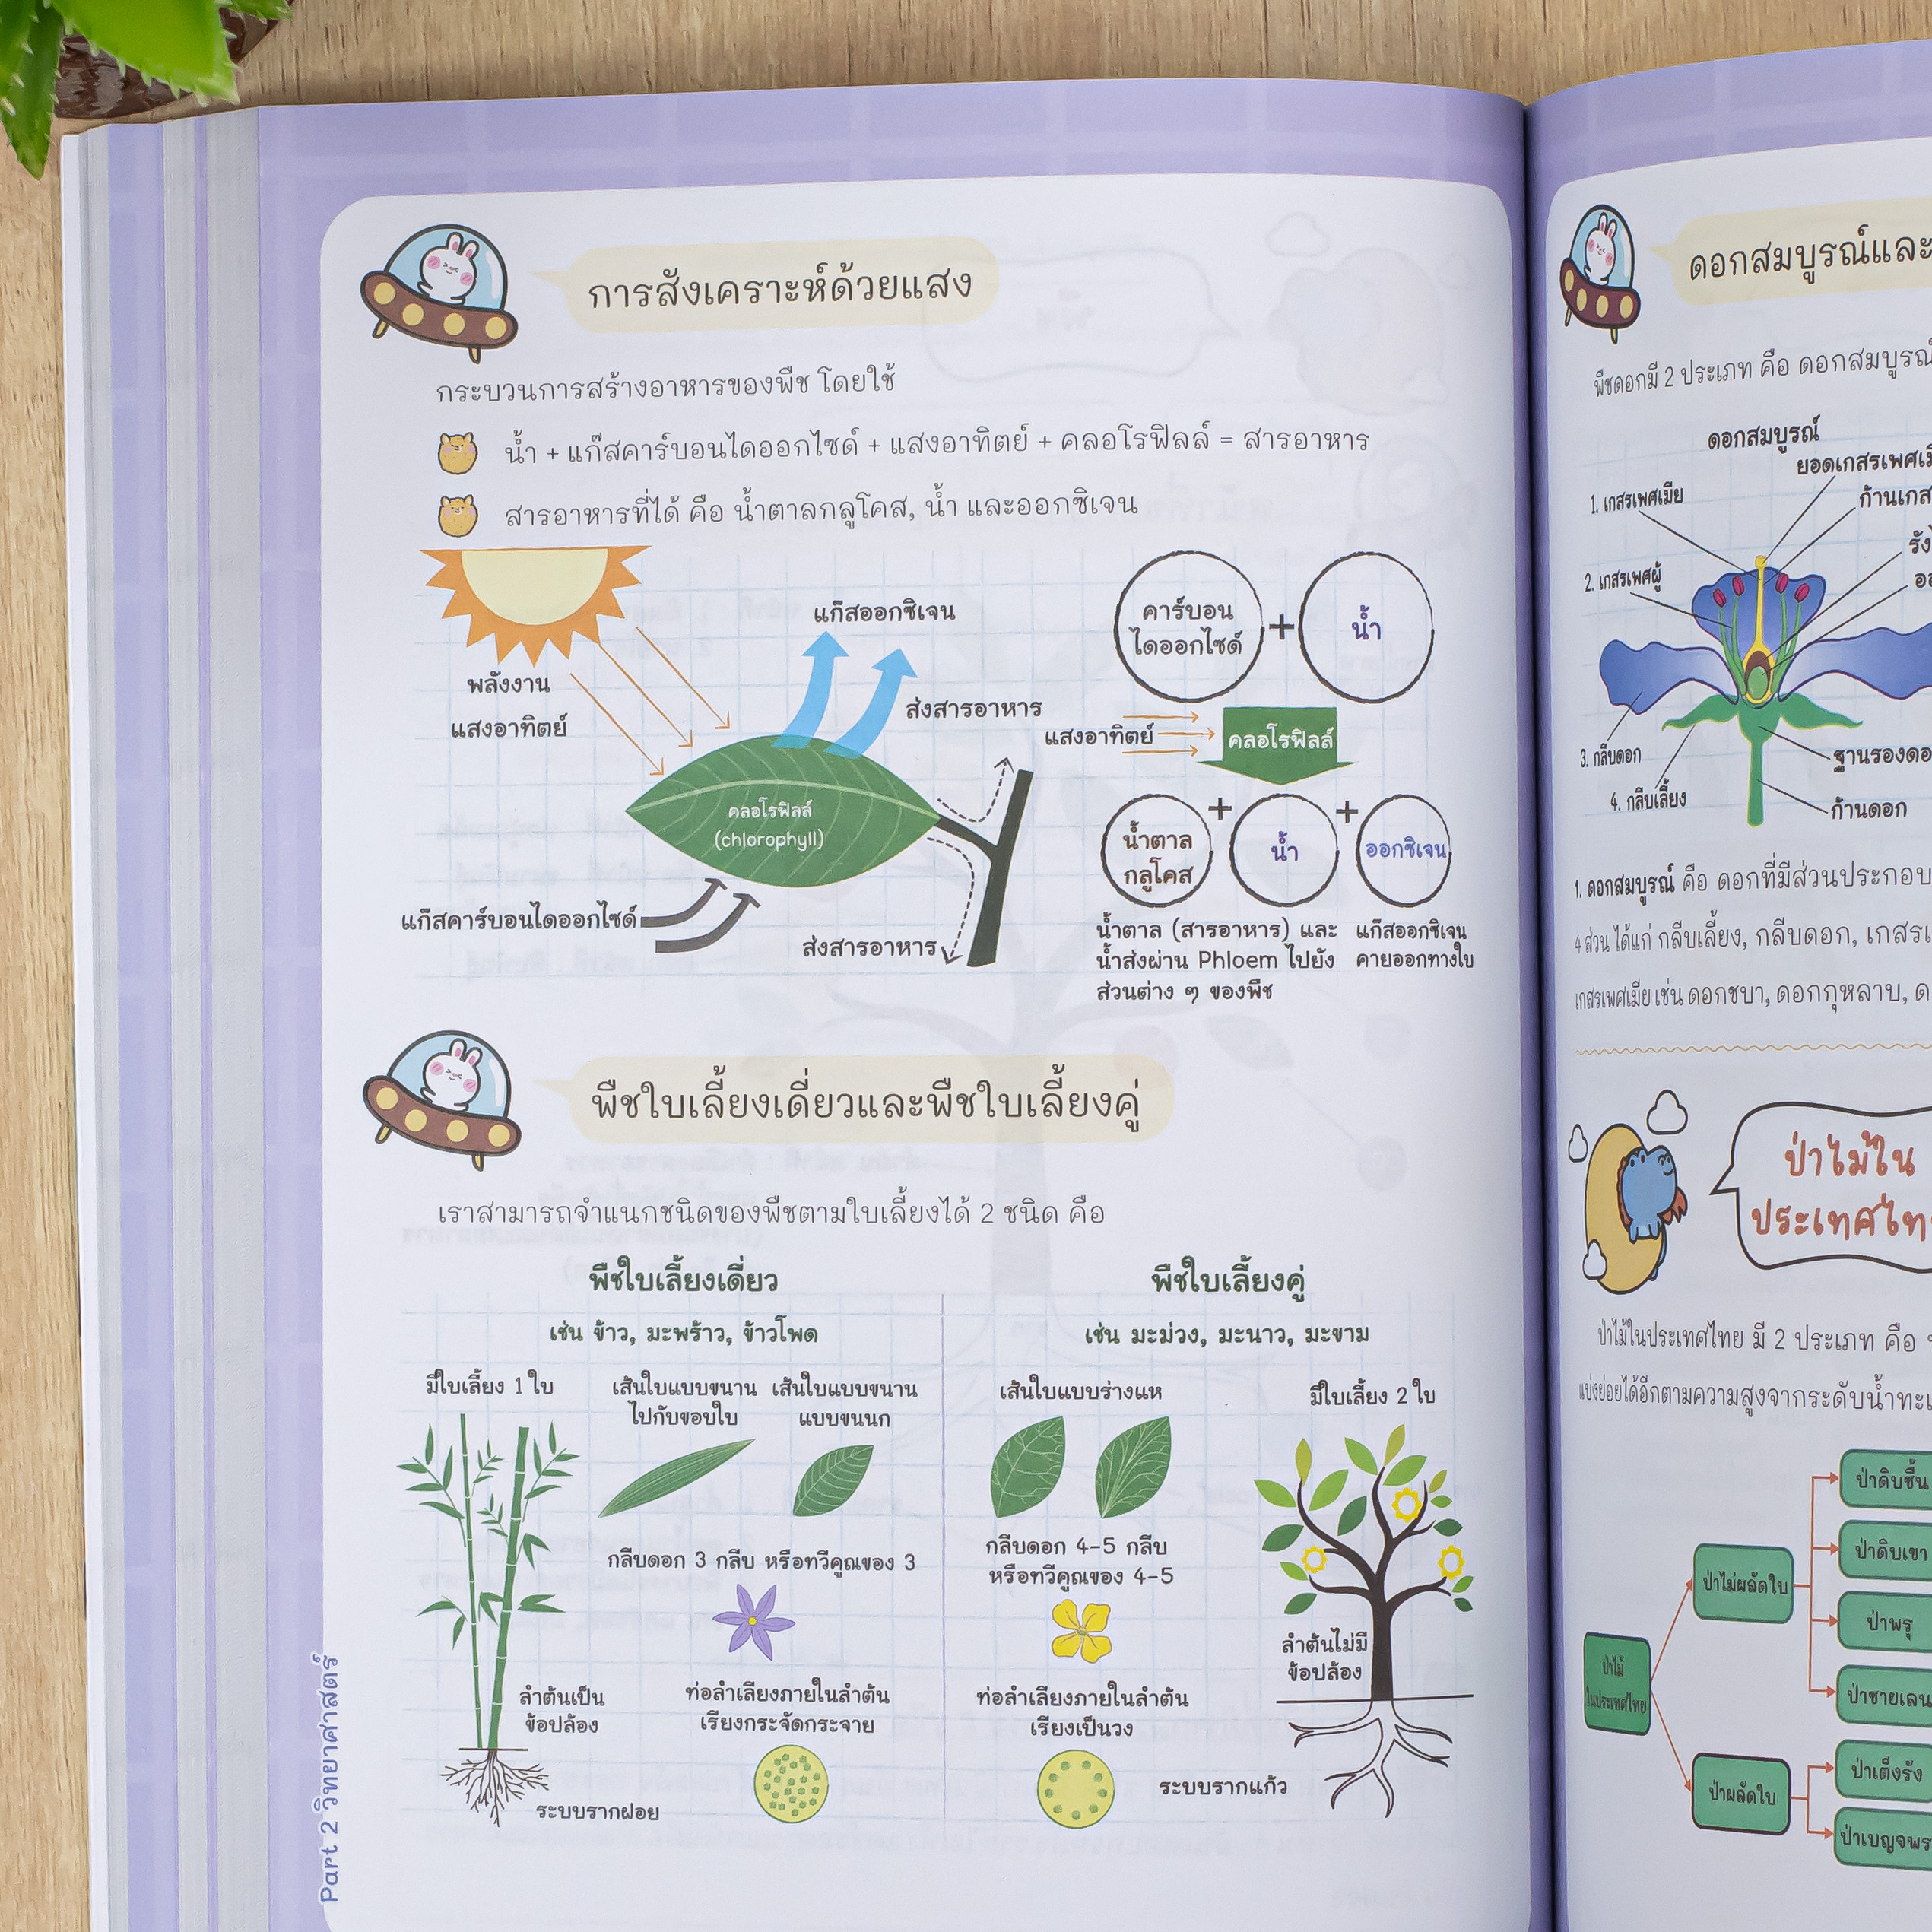 การสังเคราะห์ด้วยแสง
กระบวนการสร้างอาหารของพืช โดยใช้
น้ำ + แก๊สคาร์บอนไดออกไซด์ + แสงอาทิตย์ + คลอโรฟิลล์ = สารอาหาร
สารอาหารที่ได้ คือ น้ำตาลกลูโคส, น้ำ และออกซิเจน
แก๊สออกซิเจน
พลังงาน
แสงอาทิตย์
ส่งสารอาหาร
คลอโรฟิลล์
(chlorophyll)
แก๊สคาร์บอนไดออกไซด์
ส่งสารอาหาร
คาร์บอน
ไดออกไซด์
+
น้ำ
แสงอาทิตย์
คลอโรฟิลล์
น้ำตาล
กลูโคส
+
น้ำ
+
ออกซิเจน
น้ำตาล (สารอาหาร) และ
น้ำส่งผ่าน Phloem ไปยัง
ส่วนต่าง ๆ ของพืช
แก๊สออกซิเจน
คายออกทางใบ
พืชใบเลี้ยงเดี่ยวและพืชใบเลี้ยงคู่
เราสามารถจำแนกชนิดของพืชตามใบเลี้ยงได้ 2 ชนิด คือ
พืชใบเลี้ยงเดี่ยว
เช่น ข้าว, มะพร้าว, ข้าวโพด
มีใบเลี้ยง 1 ใบ
เส้นใบแบบขนาน
ไปกับขอบใบ
เส้นใบแบบขนาน
แบบขนนก
กลีบดอก 3 กลีบ หรือทวีคูณของ 3
ลำต้นเป็น
ข้อปล้อง
ท่อลำเลียงภายในลำต้น
เรียงกระจัดกระจาย
ระบบรากฝอย
พืชใบเลี้ยงคู่
เช่น มะม่วง, มะนาว, มะขาม
เส้นใบแบบร่างแห
มีใบเลี้ยง 2 ใบ
กลีบดอก 4-5 กลีบ
หรือทวีคูณของ 4-5
ลำต้นไม่มี
ข้อปล้อง
ท่อลำเลียงภายในลำต้น
เรียงเป็นวง
ระบบรากแก้ว
Part 2 วิทยาศาสตร์
ดอกสมบูรณ์และ
พืชดอกมี 2 ประเภท คือ ดอกสมบูรณ์
ดอกสมบูรณ์
ยอดเกสรเพศเมีย
1. เกสรเพศเมีย
2. เกสรเพศผู้
3. กลีบดอก
4. กลีบเลี้ยง
ฐานรองดอ
ก้านดอก
1. ดอกสมบูรณ์ คือ ดอกที่มีส่วนประกอบ
4 ส่วน ได้แก่ กลีบเลี้ยง, กลีบดอก,
เกสรเพศเมีย เช่น ดอกชบา, ดอกกุหลาบ,
ป่าไม้ใน
ประเทศไทย
ป่าไม้ในประเทศไทย มี 2 ประเภท คือ
แบ่งย่อยได้อีกตามความสูงจากระดับน้ำทะเ
ป่าไม้
ในประเทศไทย
ป่าไม่ผลัดใบ
ป่าดิบชื้น
ป่าดิบเขา
ป่าพรุ
ป่าชายเลน
ป่าผลัดใบ
ป่าเต็งรัง
ป่าเบญจพร